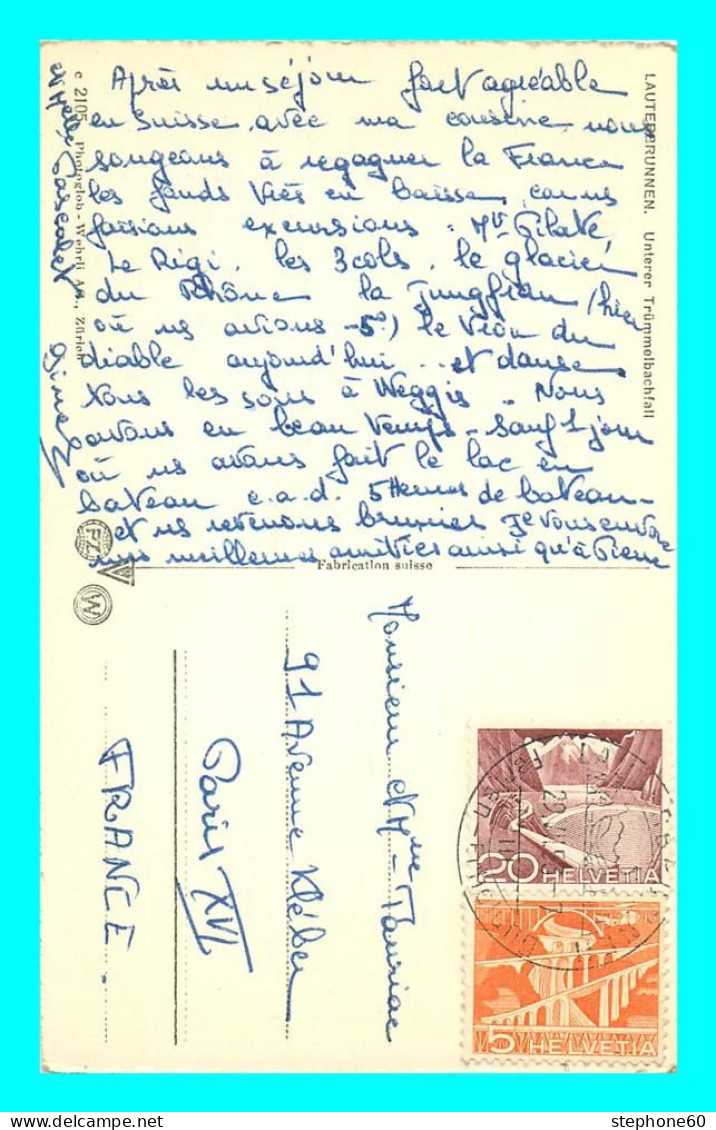 Après un séjour fort agréable
en Suisse avec ma cousine nous
songeons à regagner la France
les fonds très en baisse, car ns
faisions excursions : Mt Pilate,
Le Rigi, les 3 cols, le glacier
du Rhône la Jungfrau (hier
où ns avions -5°) le
diable aujourd'hui .. et danse
tous les soirs à Weggis. Nous
avons eu beau temps - sauf 1 jour
où ns avons fait le lac en
bateau c.a.d. 5 Heures de bateau -
et ns revenons Je vous envoie
mes meilleures amitiés ainsi qu'à Pierre
LAUTERBRUNNEN. Unterer Trümmelbachfall
c 2105 Photoglob - Wehrli AG., Zürich
FZ
W
Fabrication suisse
Monsieur et Mme Tauriac
91 Avenue Kléber
Paris XVI
FRANCE.
20 HELVETIA
5 HELVETIA
stephone60